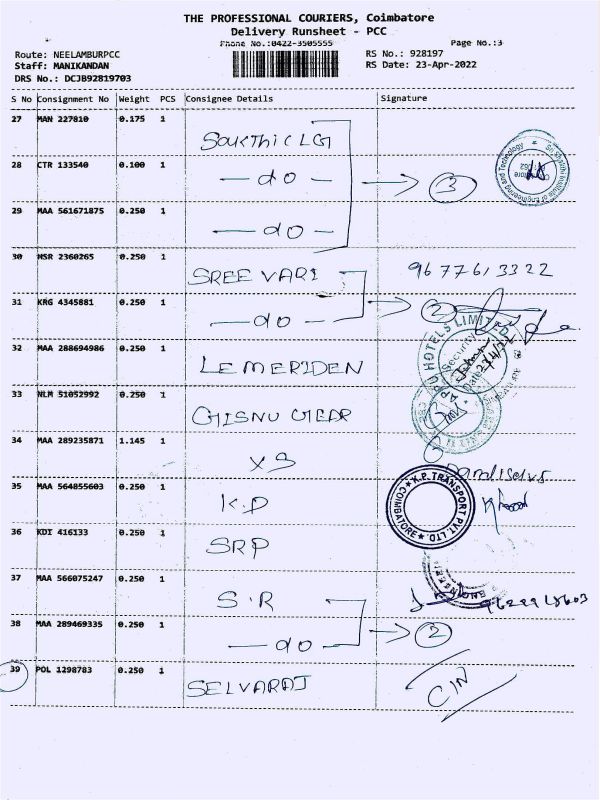 THE PROFESSIONAL COURIERS, Coimbatore
Delivery Runsheet - PCC
Phone No.:0422-3505555
Page No.:3
Route: NEELAMBURPCC
RS No.: 928197
Staff: MANIKANDAN
RS Date: 23-Apr-2022
DRS No.: DCJB92819703
S No Consignment No Weight PCS Consignee Details Signature
27 MAN 227810 0.175 1
28 CTR 133540 0.100 1 — do — → 3
29 MAA 561671875 0.250 1 — do —
30 MSR 2360265 0.250 1 SREE VARI 9677613322
31 KRG 4345881 0.250 1 — do — → 2
32 MAA 288694986 0.250 1 LEMERIDEN
33 NLM 51052992 0.250 1
34 MAA 289235871 1.145 1
35 MAA 564855603 0.250 1 K.P K.P. TRANSPORT PVT. LTD. COIMBATORE
36 KDI 416133 0.250 1 SRP
37 MAA 566075247 0.250 1 S.R
38 MAA 289469335 0.250 1 — do — → 2
39 POL 1298783 0.250 1 SELVARAJ C/N